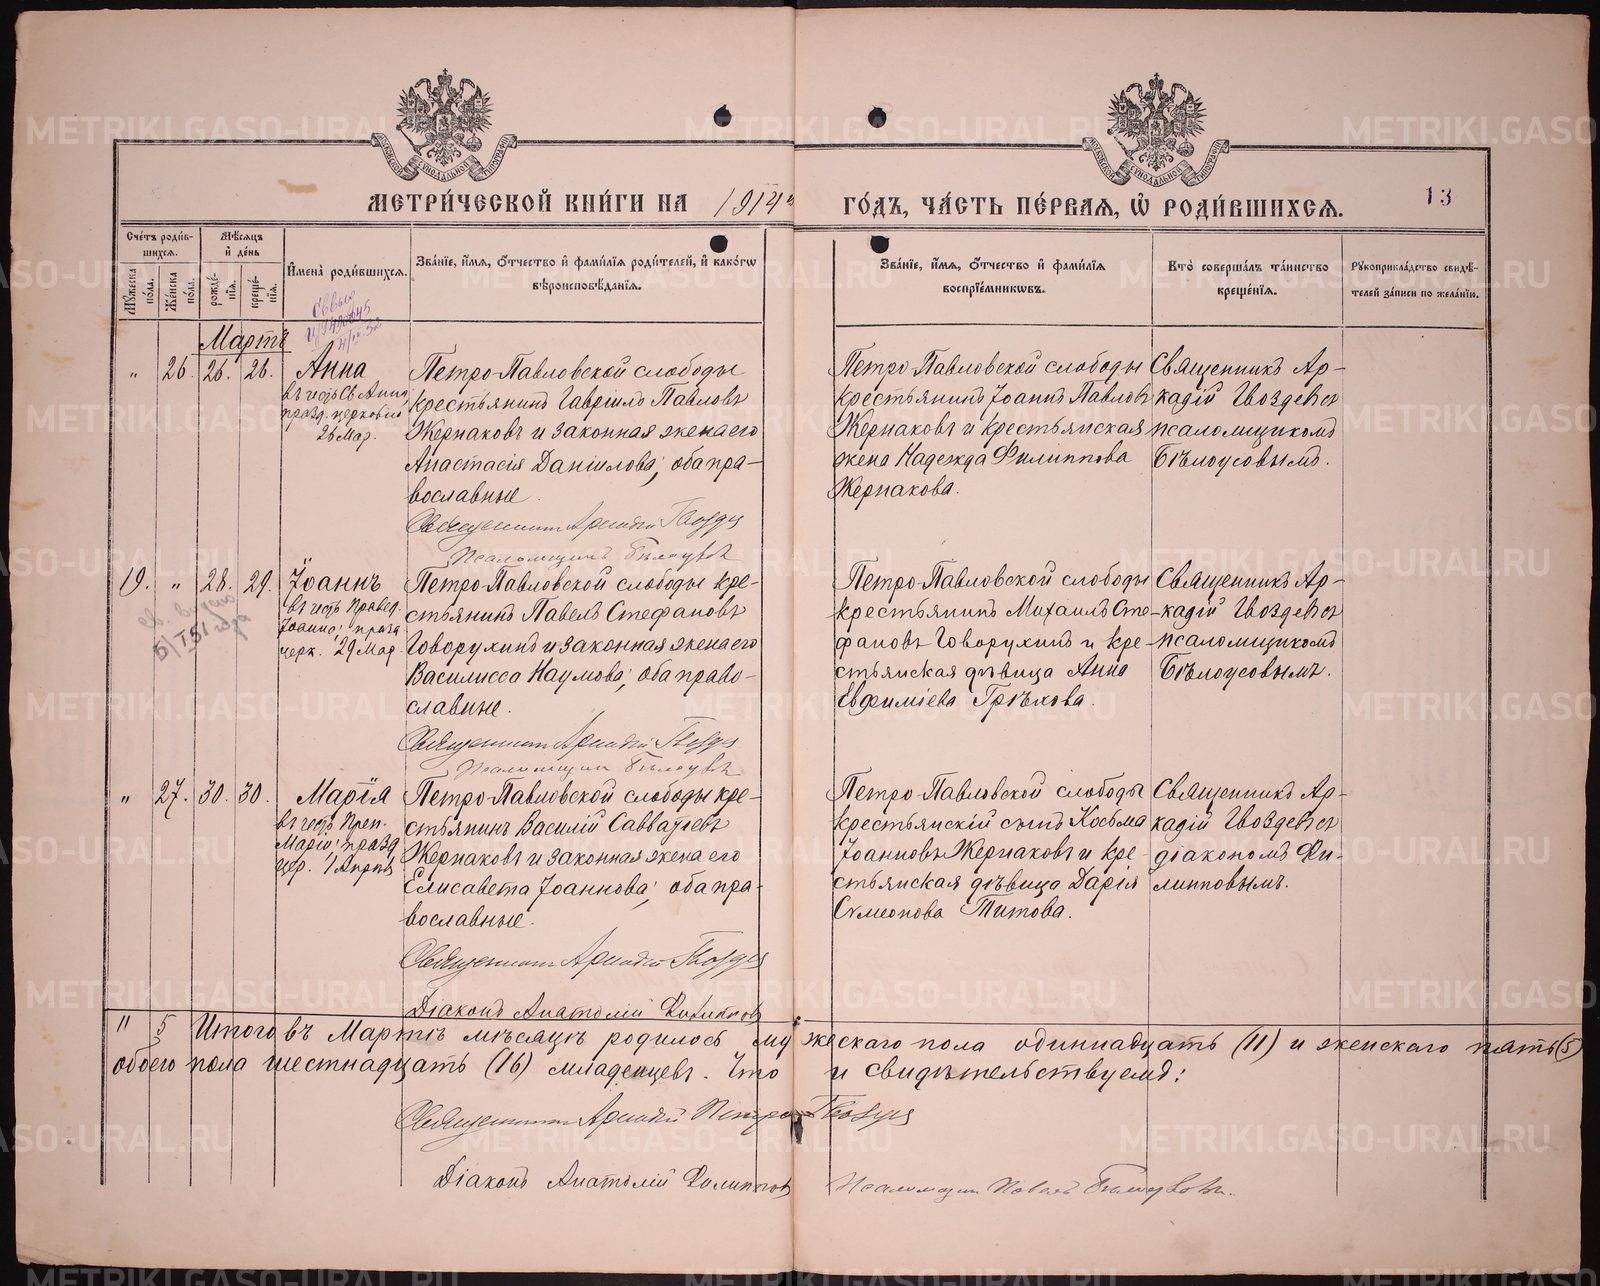 МЕТРИ́ЧЕСКОЙ КНИ́ГИ НА 1914й ГО́ДЪ, ЧА́СТЬ ПЕ́РВАЯ, Ѡ РОДИ́ВШИХСЯ.
13
Сче́тъ роди́вшихся.
Мѣ́сяцъ и де́нь
Мꙋ́жеска по́ла.
Же́нска по́ла.
рожде́нїя.
креще́нїя.
Имена̀ роди́вшихся.
Зва́нїе, и́мя, о́тчество и фами́лїя роди́телей, и како́гѡ
вѣроисповѣ́данїя.
Зва́нїе, и́мя, о́тчество и фами́лїя
воспрїе́мникѡвъ.
Кто̀ соверша́лъ та́инство
креще́нїя.
Рꙋкоприкла́дство свидѣ́телей за́писи по жела́нїю.
Мартъ
" 26. 26. 26. Анна
въ честь Св Анны
празд. церковью
26 Мар.
Петро-Павловской слободы
крестьянинъ Гавріилъ Павловъ
Жернаковъ и законная жена его
Анастасія Даніилова; оба пра-
вославные.
Священникъ Аркадій Гвоздев
Псаломщикъ Бѣлоусовъ
Петро-Павловской слободы
крестьянинъ Іоаннъ Павловъ
Жернаковъ и крестьянская
жена Надежда Филиппова
Жернакова.
Священникъ Ар-
кадій Гвоздевъ съ
псаломщикомъ
Бѣлоусовымъ.
19. " 28. 29. Іоаннъ
въ честь Правед.
Іоанна; празд
церк. 29 Мар.
Петро-Павловской слободы кре-
стьянинъ Павелъ Стефановъ
Говорухинъ и законная жена его
Василисса Наумова; оба право-
славные.
Священникъ Аркадій Гвоздев
Псаломщикъ Бѣлоусовъ
Петро-Павловской слободы
крестьянинъ Михаилъ Сте-
фановъ Говорухинъ и кре-
стьянская дѣвица Анна
Евфиміева Грѣхова.
Священникъ Ар-
кадій Гвоздевъ съ
псаломщикомъ
Бѣлоусовымъ.
" 27. 30. 30. Марія
въ честь Преп.
Маріи; празд
цер. 1 Апрѣля
Петро-Павловской слободы кре-
стьянинъ Василій Савватіевъ
Жернаковъ и законная жена его
Елисавета Іоаннова; оба пра-
вославные.
Священникъ Аркадій Гвоздев
Діаконъ Анатолій Филипповъ
Петро-Павловской слободы
крестьянскій сынъ Косьма
Іоанновъ Жернаковъ и кре-
стьянская дѣвица Дарія
Сѵмеонова Титова.
Священникъ Ар-
кадій Гвоздевъ съ
діакономъ Фи-
липповымъ.
" 5 Итого въ Мартѣ мѣсяцѣ родилось мужескаго пола одиннадцать (11) и женскаго пять (5)
обоего пола шестнадцать (16) младенцевъ. Что и свидѣтельствуемъ:
Священникъ Аркадій Петров Гвоздев
Діаконъ Анатолій Филипповъ
Псаломщикъ Павелъ Бѣлоусовъ.
METRIKI.GASO-URAL.RU